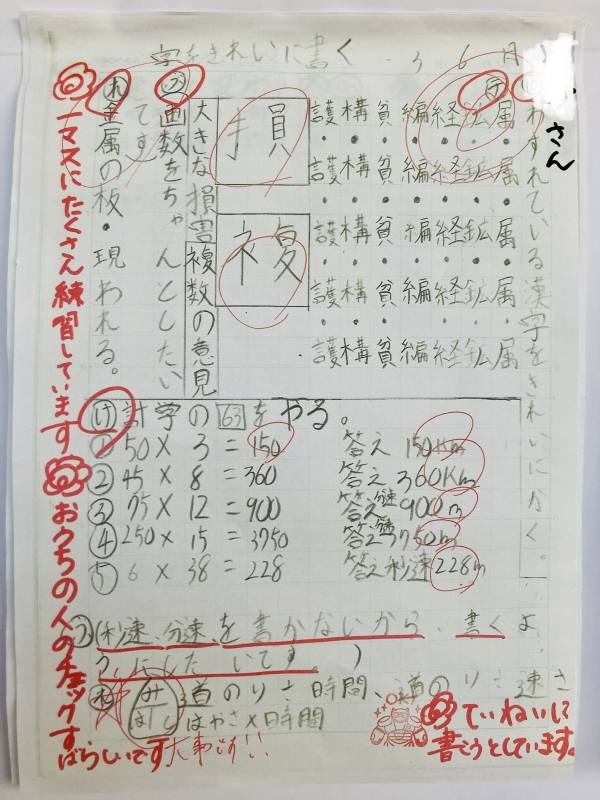 字をきれいに書く 3 6月
わすれている漢字をきれいにかく。
さん
護構貧編経鉱属
護構貧編経鉱属
護構貧編経鉱属
護構貧編経鉱属
護構貧編経鉱属
損
複
大きな損害複数の意見
ふ画数をちゃんとしたい
です
れ金属の板・現われる。
け計字の63をやる。
① 50×3=150 答え 150Km
② 45×8=360 答え 360Km
③ 75×12=900 答え 分速900m
④ 250×15=3750 答え 3750m
⑤ 6×38=228 答え 秒速228m
ふ(秒速、分速、を書かないから、書くよ
うにしたいです。)
み 道のり÷時間、道のり÷速さ
はじ はやさ×時間
大事です!!
一マスにたくさん練習しています
おうちの人のチェックす
ばらしいです
ていねいに
書こうとしています。